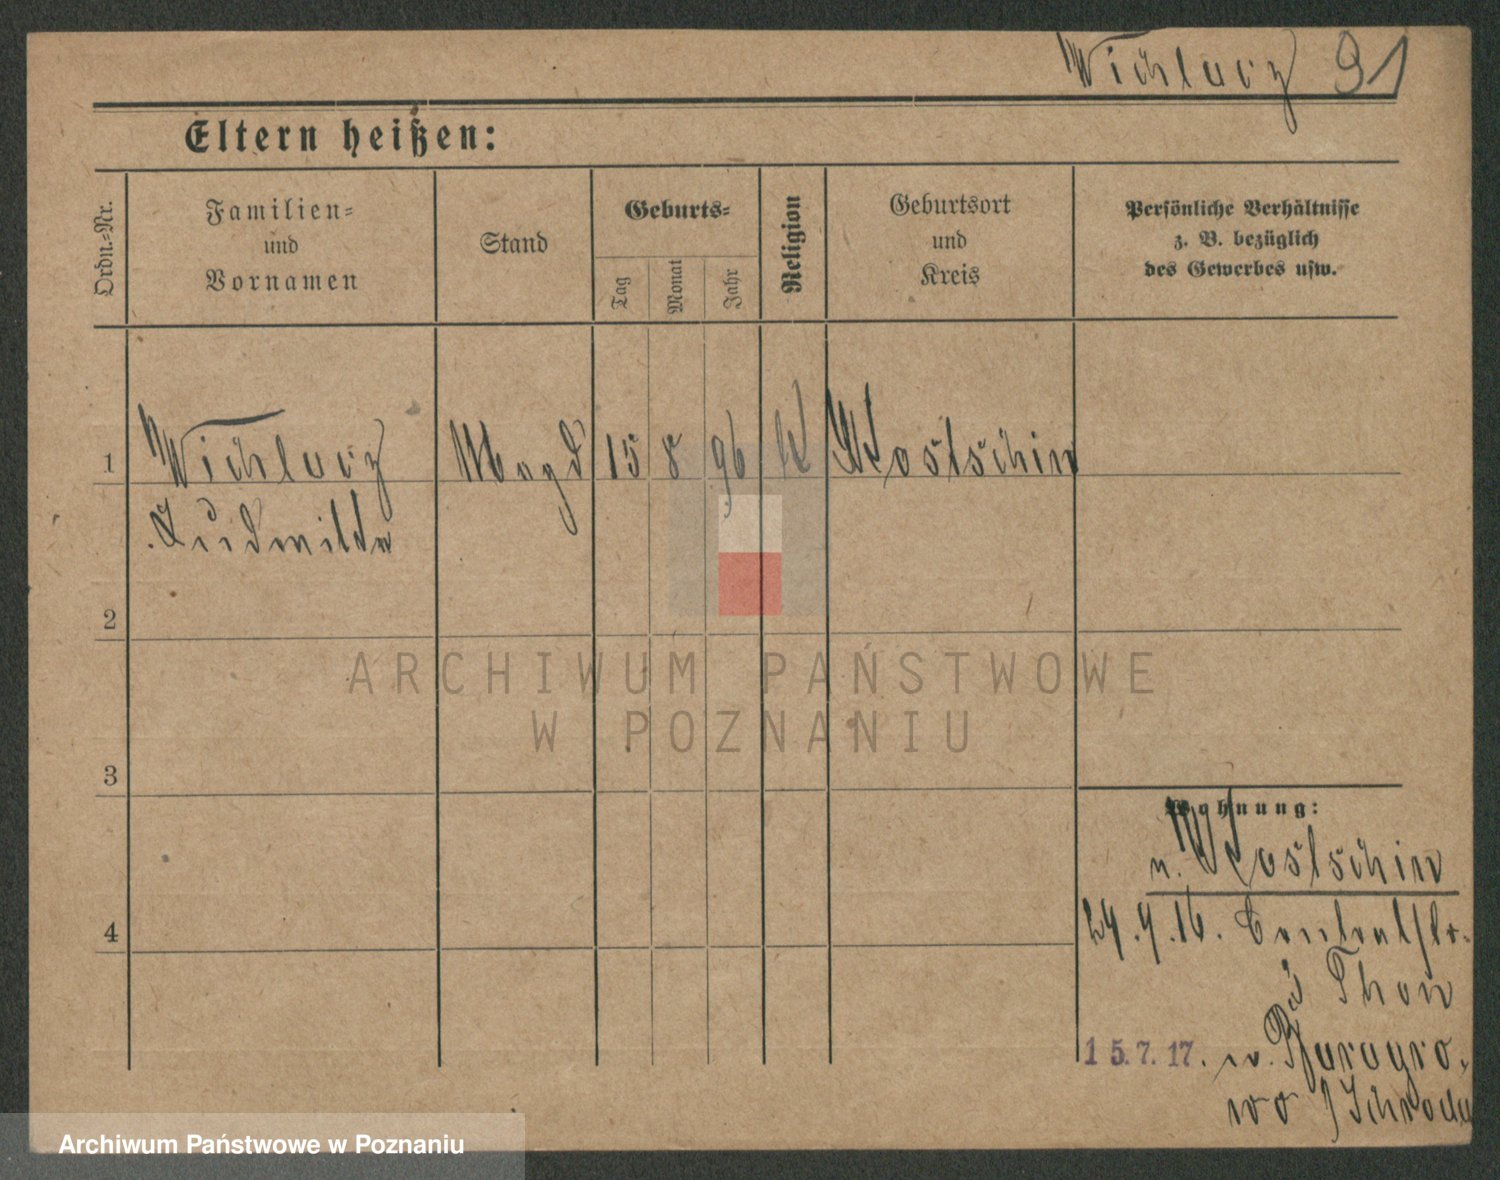 Wichlacz 91
Eltern heißen:
Ordn.=Nr.
Familien=
und
Vornamen
Stand
Geburts=
Tag
Monat
Jahr
Religion
Geburtsort
und
Kreis
Persönliche Verhältnisse
z. B. bezüglich
des Gewerbes usw.
1
Wichlacz
Magd
15
8
96
K
Kostschin
Ludmilla
2
ARCHIWUM PAŃSTWOWE
W POZNANIU
3
Wohnung:
n. Kostschin
4
24.9.16. Centralstr.
Thon
15.7.17.
Archiwum Państwowe w Poznaniu